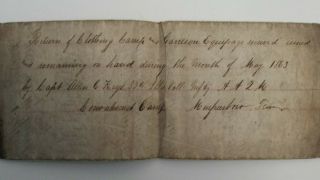 Return of Clothing Camp & Garrison Equipage received issued
& remaining on hand during the Month of May 1863
by Capt. Allen C. Keys A A Q M
Convalescent Camp Murfreesboro Tenn